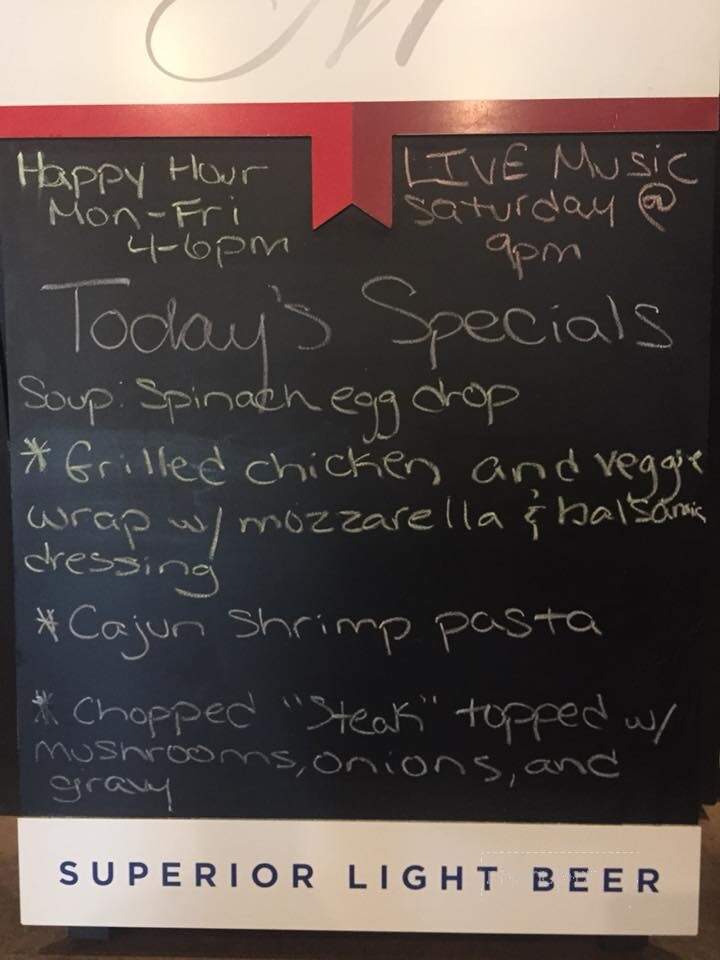 M
Happy Hour
Mon-Fri
4-6pm
LIVE Music
Saturday @
9pm
Today's Specials
Soup: Spinach egg drop
* Grilled chicken and veggie
wrap w/ mozzarella & balsamic
dressing
* Cajun Shrimp pasta
* Chopped "Steak" topped w/
mushrooms, onions, and
gravy
SUPERIOR LIGHT BEER